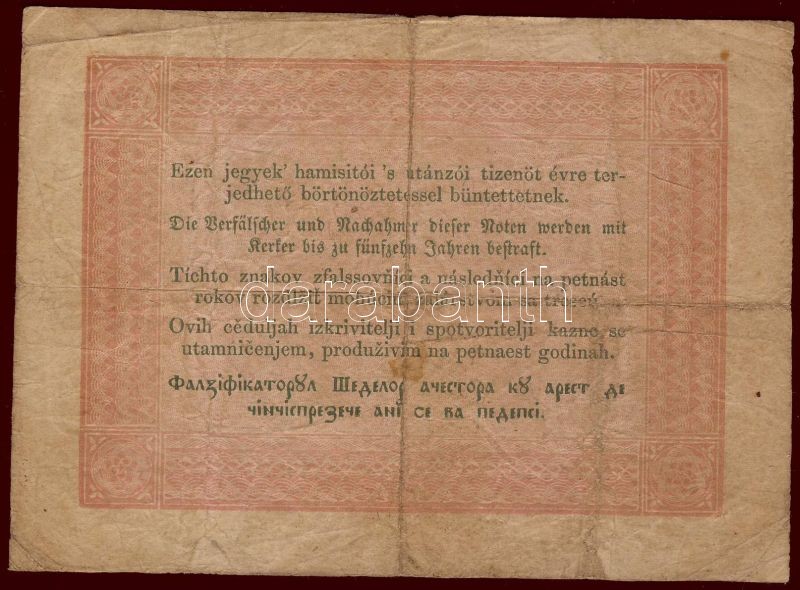 Ezen jegyek' hamisitói 's utánzói tizenöt évre ter-
jedhető börtönöztetéssel büntettetnek.
Die Verfälscher und Nachahmer dieser Noten werden mit
Kerker bis zu fünfzehn Jahren bestraft.
Tíchto znakov zfalssovňíci a následňíci na petnást
rokov rozúlžiť sa
darabanth
Ovih cěduljah izkrivitelji i spotvoritelji kazne se
utamničenjem, produživim na petnaest godinah.
Фалꙁіфікаторꙋл Шеделор ачестора кꙋ арест де
чінчіспрезече ані се ва педепсі.